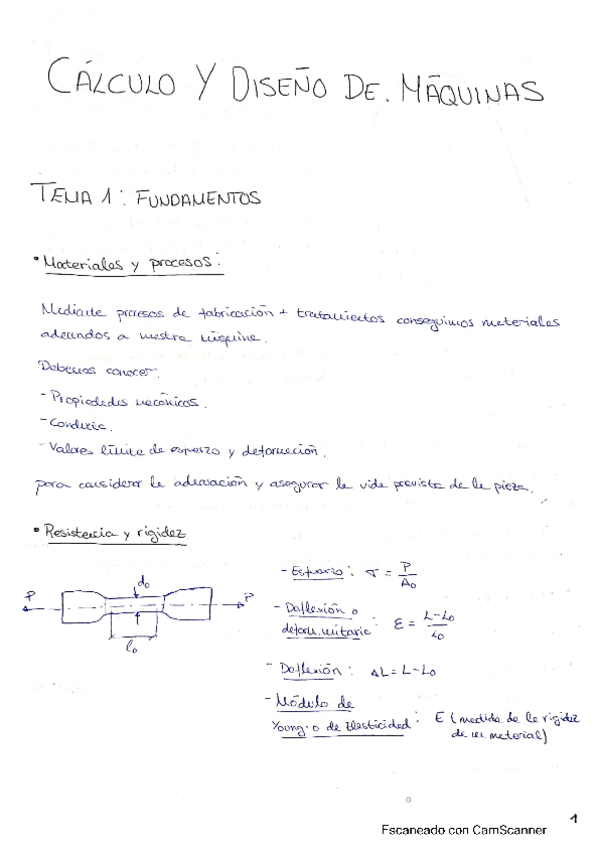 CÁLCULO Y DISEÑO DE. MÁQUINAS
TEMA 1: FUNDAMENTOS
• Materiales y procesos:
Mediante procesos de fabricación + tratamientos conseguimos materiales
adecuados a nuestra máquina.
Debemos conocer:
- Propiedades mecánicas.
- Conducta.
- Valores límite de esfuerzo y deformación.
para considerar la adecuación y asegurar la vida prevista de la pieza.
• Resistencia y rigidez
P
d₀
P
l₀
- Esfuerzo: σ = P/A₀
- Deflexión o
deform. unitaria: ε = L-L₀/L₀
- Deflexión: ΔL = L-L₀
- Módulo de
Young o de Elasticidad: E (medida de la rigidez
de un material)
1
Escaneado con CamScanner